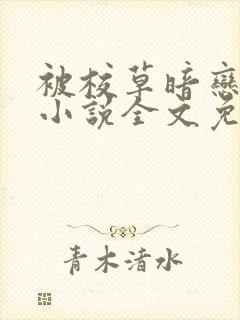 被校草暗戀
小說全文免
青木清水